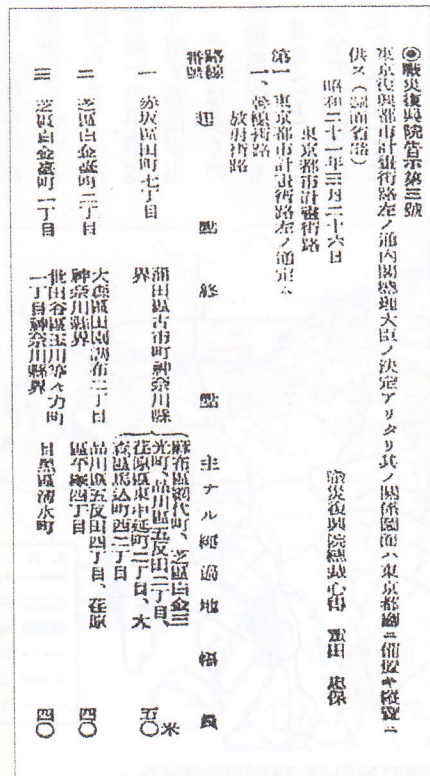 ◉戰災復興院告示第三號
東京復興都市計畫街路左ノ通內閣總理大臣ノ決定アリタリ其ノ關係圖面ハ東京都廳ニ備置キ縱覽ニ
供ス（圖面省略）
昭和二十一年三月二十六日
戰災復興院總裁心得　重田　忠保
東京都市計畫街路
第一　東京都市計畫街路左ノ通定ム
一、幹線街路
放射街路
路線
番號　起點　終點　主ナル經過地　幅員
米
一　赤坂區田町七丁目　蒲田區古市町神奈川縣
界　麻布區網代町、芝區白金三
光町、品川區五反田二丁目、
荏原區東中延町二丁目、大
森區馬込町西二丁目　五〇
二　芝區白金臺町二丁目　大森區田園調布二丁目
神奈川縣界　品川區五反田四丁目、荏原
區平塚四丁目　四〇
三　芝區白金臺町一丁目　世田谷區玉川等々力町
一丁目神奈川縣界　目黑區清水町　四〇